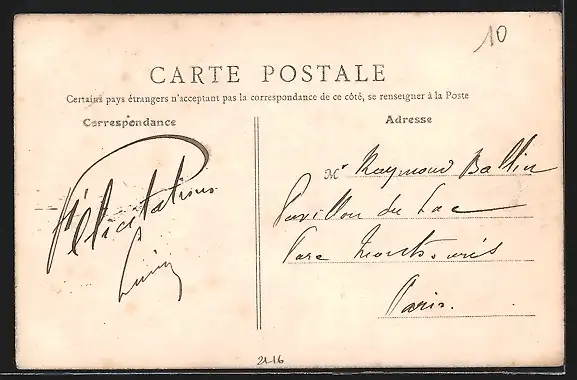 10
CARTE POSTALE
Certains pays étrangers n'acceptant pas la correspondance de ce côté, se renseigner à la Poste
Correspondance
Félicitations
Adresse
Mr Raymond Ballin
Pavillon du Lac
Parc Montsouris
Paris.
21-16